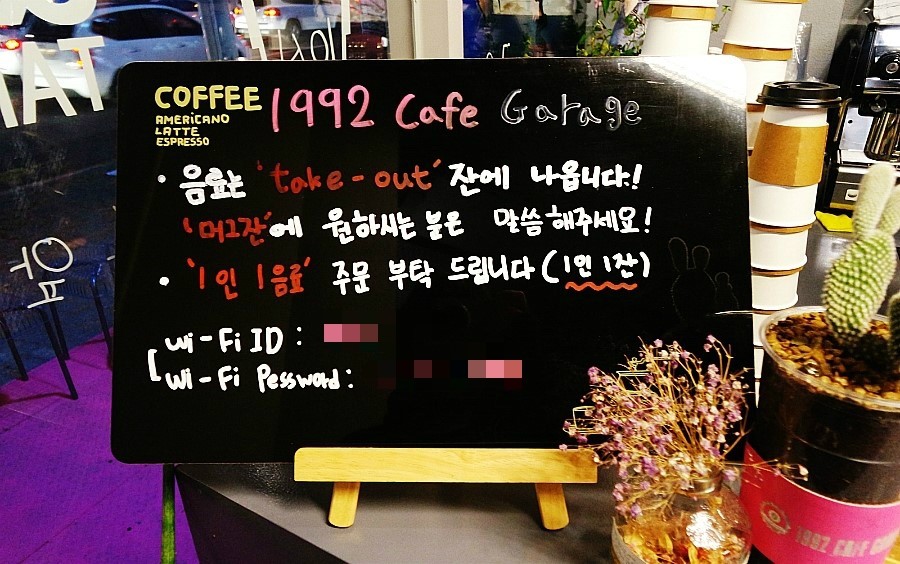 COFFEE
AMERICANO
LATTE
ESPRESSO
1992 Cafe Garage
• 음료는 'take-out' 잔에 나옵니다!
'머그잔'에 원하시는 분은 말씀해주세요!
• '1인 1음료' 주문 부탁 드립니다 (1인 1잔)
Wi-Fi ID :
Wi-Fi Pessword :
1992 CAFE